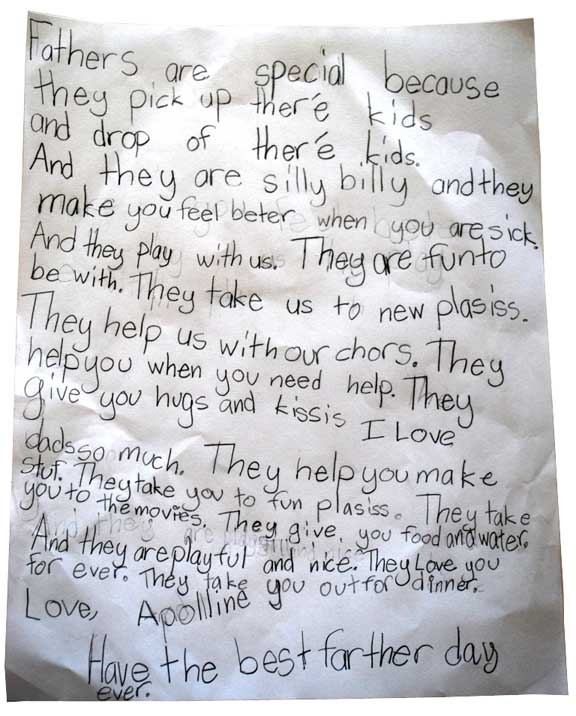 Fathers are special because
they pick up there kids
and drop of there kids.
And they are silly billy and they
make you feel beter when you are sick.
And they play with us. They are fun to
be with. They take us to new plasiss.
They help us with our chors. They
help you when you need help. They
give you hugs and kissis I Love
dads so much. They help you make
stuf. They take you to fun plasiss. They take
you to the movies. They give you food and water.
And they are playful and nice. They Love you
for ever. They take you out for dinner.
Love, Apolline
Have the best farther day
ever.